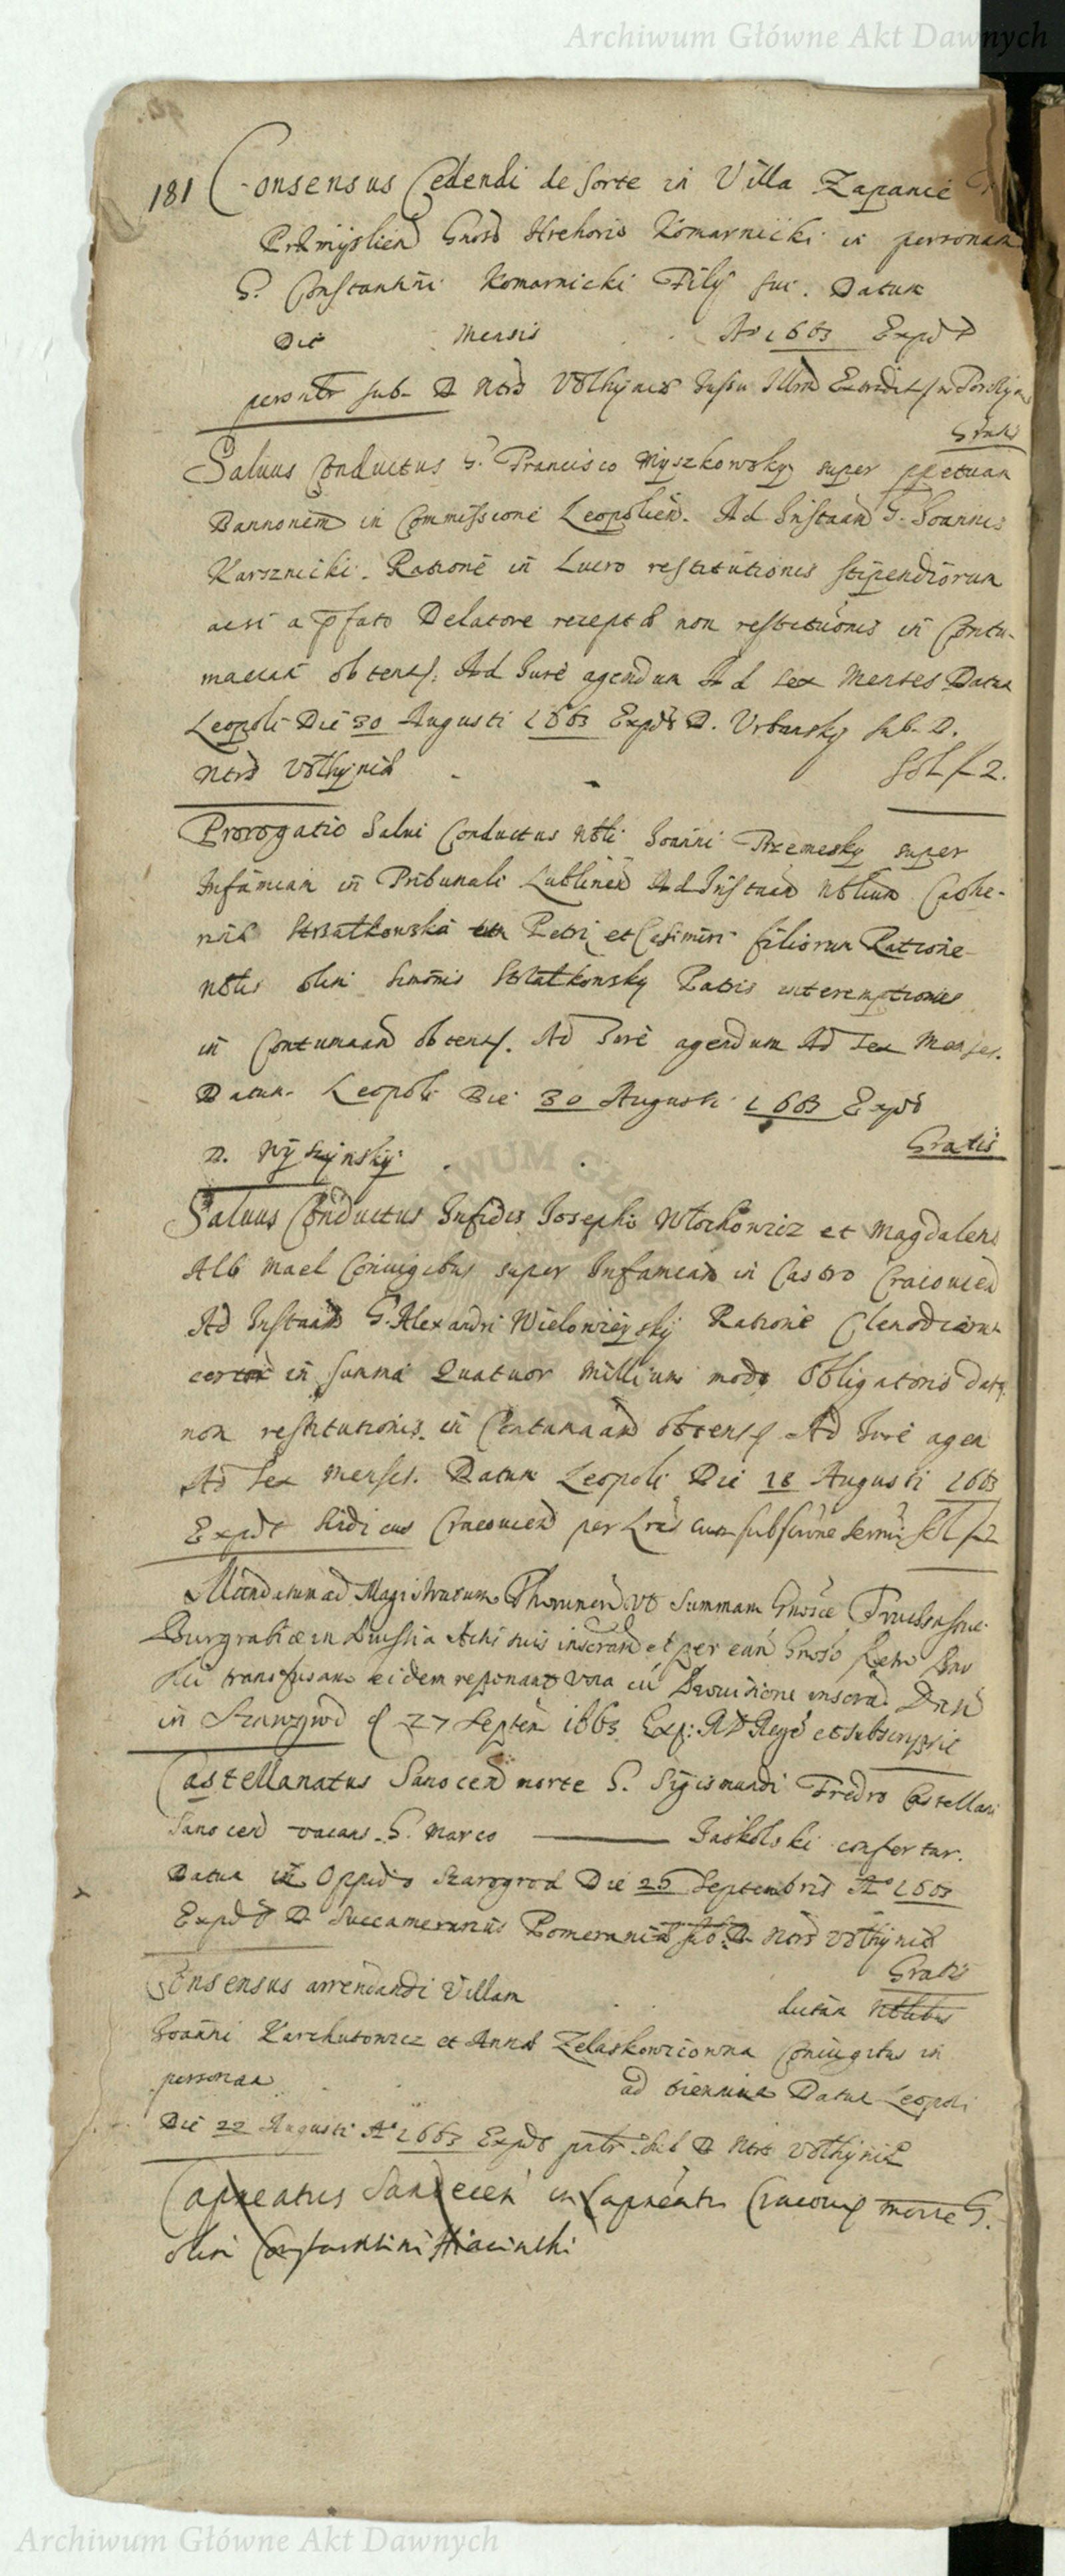 Archiwum Główne Akt Dawnych
181 Consensus Cedendi de Sorte in Villa Zapanie
Præmyslien Gnoso Hrehorio Komarnicki in personam
G. Constantini Komarnicki Filij sui. Datum
Die Mensis Ao 1663 Expd
sub D Ntro Volhyniæ Jussu Illmi
Gratis
Saluus Conductus G. Francisco Myszkowsky super ppetuam
Bannonem in Commissione Leopolien. Ad Instaan G. Joannis
Karsznicki. Ratione in Lucro restitutionis stipendiorum
acsi a pfato Delatore recept non restitutionis in Contu-
maciam obtent. Ad Jure agendum Ad sex Menses Datum
Leopoli Die 30 Augusti 1663 Expdt D. Urbansky sub D.
Ntro Volhyniæ Sol f 2.
Prorogatio Salui Conductus Nbli Joanni Przemesky super
Infamiam in Tribunali Lublinen Ad Instaan Nblium Cathe-
rinæ Stratkowska Petri et Casimiri filiorum Ratione
Nblis olim Simonis Stratkowsky Patris interemptionis
in Contumaan obtent. Ad Jure agendum Ad sex Menses.
Datum Leopoli Die 30 Augusti 1663 Expdt
D. Wyszynsky Gratis
Saluus Conductus Infidis Josepho Wlochowicz et Magdalena
Alb Mael Coniugibus super Infamiam in Castro Cracouien
Ad Instaan G. Alexandri Wielowieysky Ratione Clenodiorum
certor in summa Quatuor Millium modo Obligatorio dat
non restitutionis in Contumaan obtent Ad Jure agen
Ad sex Menses. Datum Leopoli Die 18 Augusti 1663
Expdt Cracouien per Lras cum subscrione Sol f 2
Mandatum ad Magistratum Thorunen Vt Summam Gnosæ
Burgrabiæ in Actis suis inserant et per eam Gnoso
transfusam eidem reponant
in Szarogrod d 27 Septem 1663 Exp: et subscripsit
Castellanatus Sanocen morte G. Sigismundi Fredro Castellani
Sanocen vacans G. Marco Jaskolski confertur.
Datum in Oppido Szarogrod Die 26 Septembris Ao 1663
Expdt D Succamerarius Pomeraniæ sub D. Ntro Volhyniæ
Gratis
Consensus arrendandi Villam Nblibus
Joanni Karchutowicz et Anna Zelaskowiczowna Coniugibus in
personam ad biennium Datum Leopoli
Die 22 Augusti Ao 1663 Expdt sub D Ntro Volhyniæ
Capneatus Sandecen in Capneatu Cracouien morte G.
olim Constantini Hiacinthi
Archiwum Główne Akt Dawnych